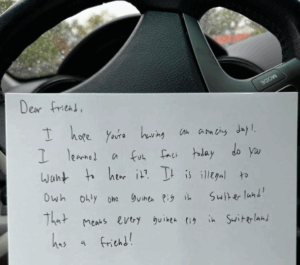 Dear friend,
I hope you're having an amazing day!
I learned a fun fact today do you
want to hear it? It is illegal to
own only one guinea pig in Switzerland!
That means every guinea pig in Switzerland
has a friend!